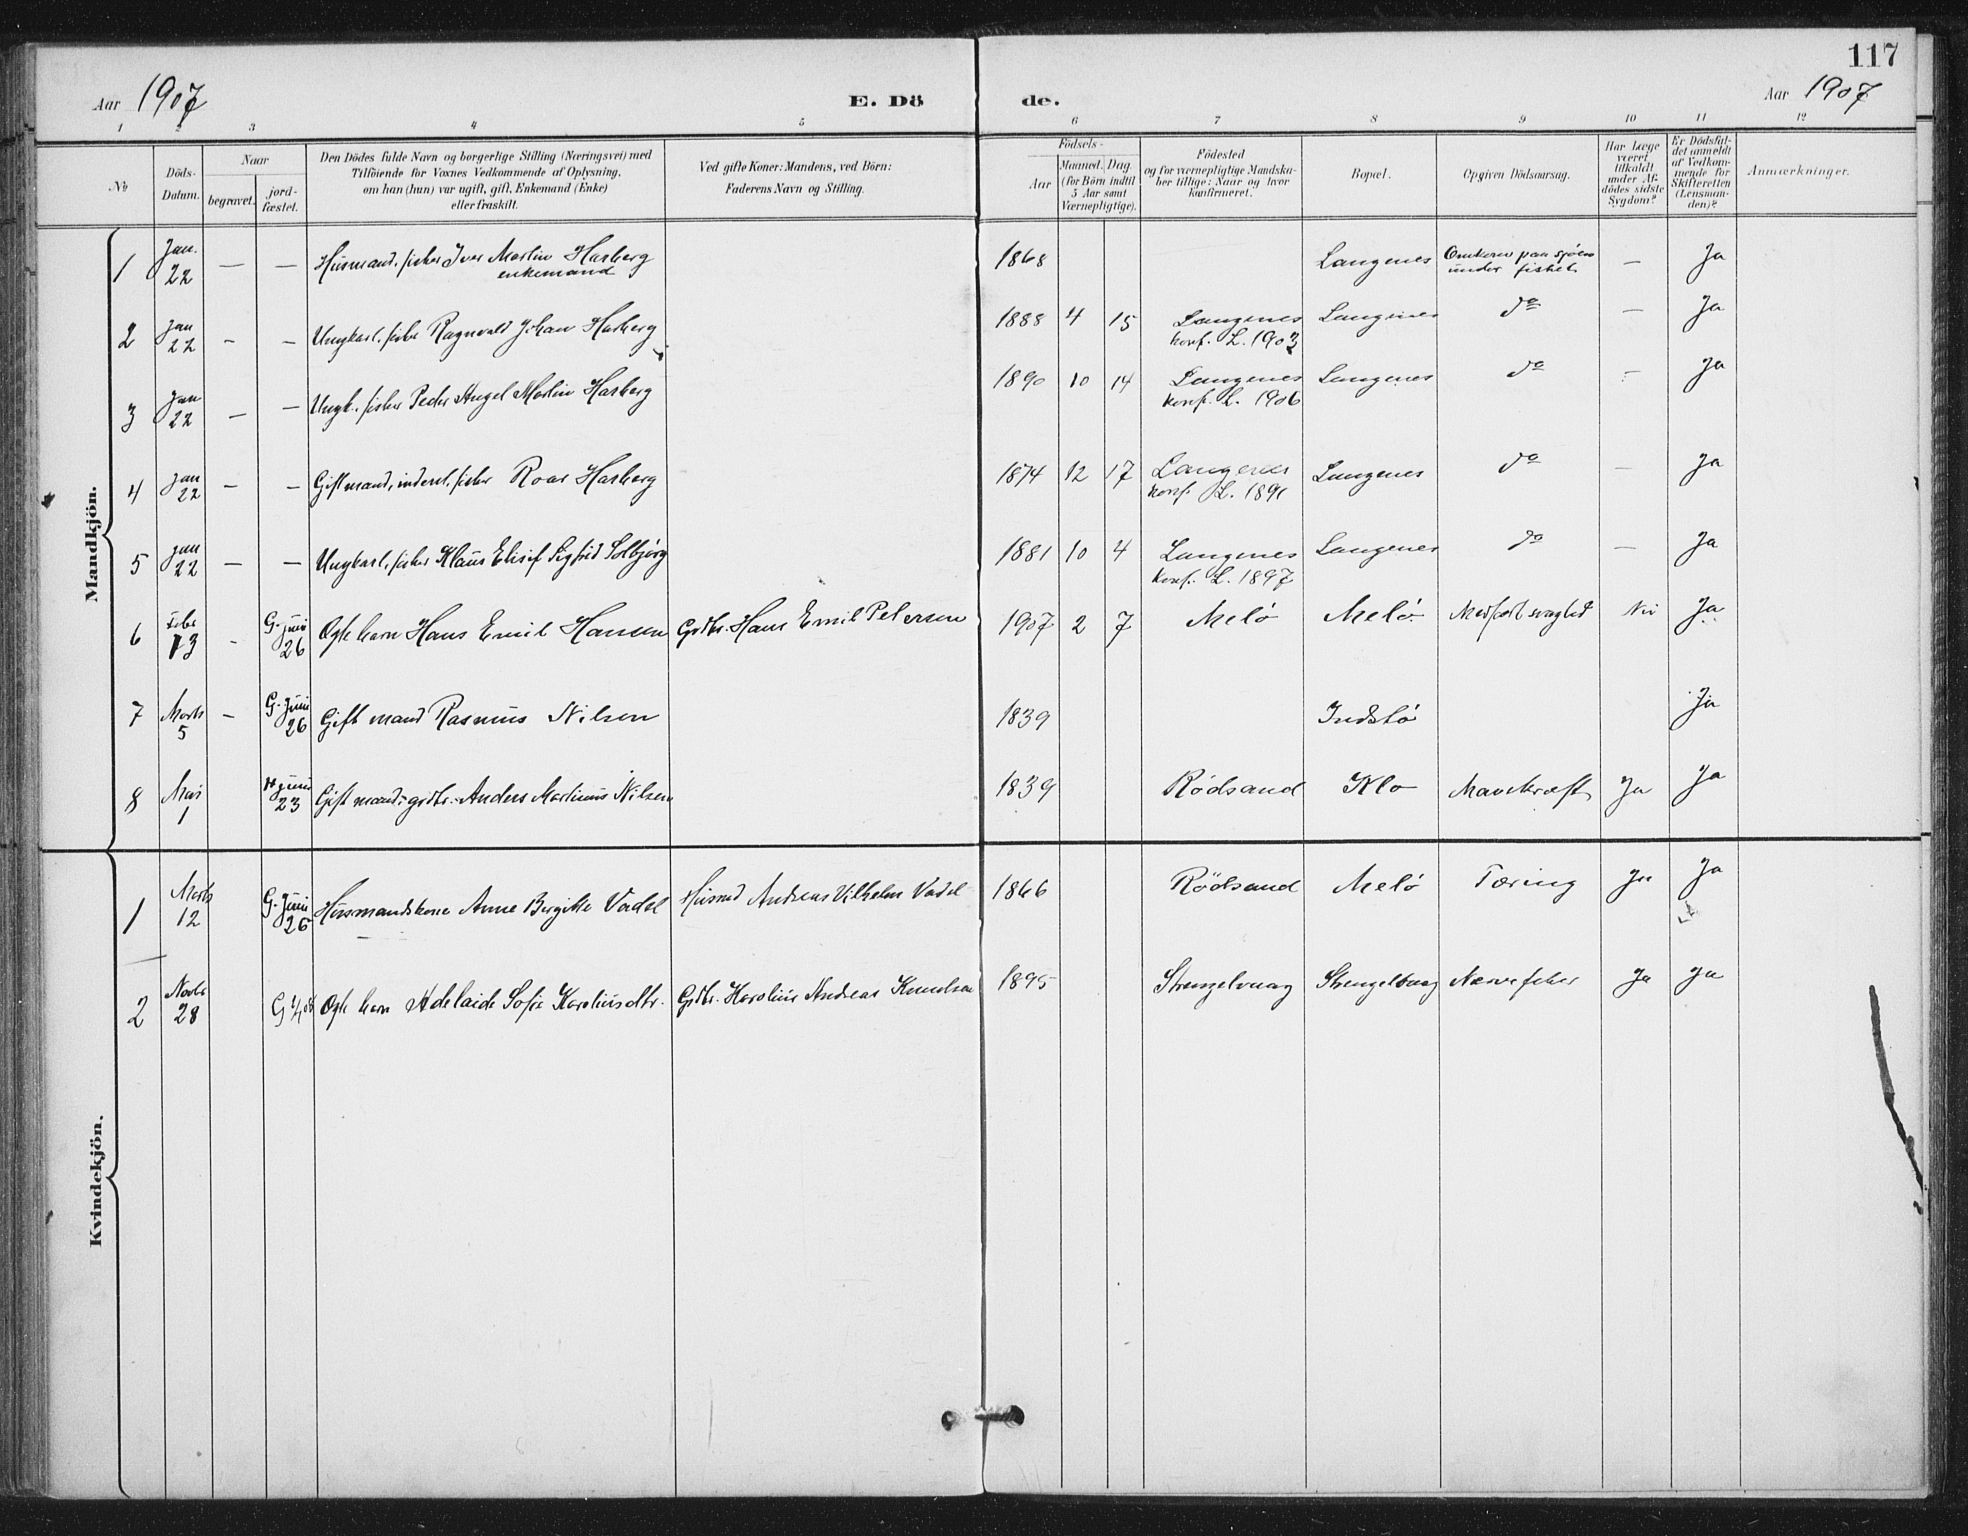 117
Aar 1907
E. Dö
de.
Aar 1907
1 2 3 4 5 6 7 8 9 10 11 12
No
Döds-
Datum.
Naar
begravet.
jord-
fæstet.
Den Dödes fulde Navn og borgerlige Stilling (Næringsvei) med
Tilföiende for Voxnes Vedkommende af Oplysning,
om han (hun) var ugift, gift, Enkemand (Enke)
eller fraskilt.
Ved gifte Koner: Mandens, ved Börn:
Faderens Navn og Stilling.
Födsels-
Aar
Maaned. Dag.
(for Börn indtil
5 Aar samt
Værnepligtige).
Födested
og for værnepligtige Mandska-
ber tillige: Naar og hvor
konfirmeret.
Bopæl.
Opgiven Dödsaarsag.
Har Læge
været
tilkaldt
under Af-
dödes sidste
Sygdom?
Er Dödsfal-
det anmeldt
af Vedkom-
mende for
Skifteretten
(Lensman-
den)?
Anmærkninger.
Mandkjön.
1 Jan. 22 — — Husmand, fisker Iver Martin Hasberg enkemand 1868 Langenes Omkom paa sjøen under fisket — Ja
2 Jan 22 - - Ungkarl, fisker Ragnvald Johan Hasberg 1888 4 15 Langenes konf. L. 1903 Langenes do — Ja
3 Jan 22 — — Ungk. fisker Peder Angel Martin Hasberg 1890 10 14 Langenes konf. L. 1906 Langenes do - Ja
4 Jan 22 - - Gift mand, inderst, fisker Roar Hasberg 1874 12 17 Langenes konf. L. 1891 Langenes do — Ja
5 Jan 22 — — Ungkarl, fisker Klaus Elisif Sigfrid Solbjørg 1881 10 4 Langenes konf. L. 1897 Langenes do — Ja
6 Febr 13 - G. Juni 26 Ægte barn Hans Emil Hansen Grdbr. Hans Emil Petersen 1907 2 7 Melø Melø Medfødt svaghed Nei Ja
7 Marts 5 - G. Juni 26 Gift mand Rasmus Nilsen 1839 Indstø Ja
8 Mai 1 Juni 23 Gift mand, grdbr. Anders Martinus Nilsen 1839 Rödsand Klo Mavekræft Ja Ja
Kvindekjön.
1 Marts 12 G. Juni 26 Husmandskone Anne Birgitte Vadel Husmd Andreas Vilhelm Vadel 1866 Rödsand Melö Tæring Ja Ja
2 Novbr 28 G Ægte barn Adelaide Sofie Karoliusdtr. Grdbr. Karolius Andreas Knudsen 1895 Strengelvaag Strengelvaag Nervefeber Ja Ja